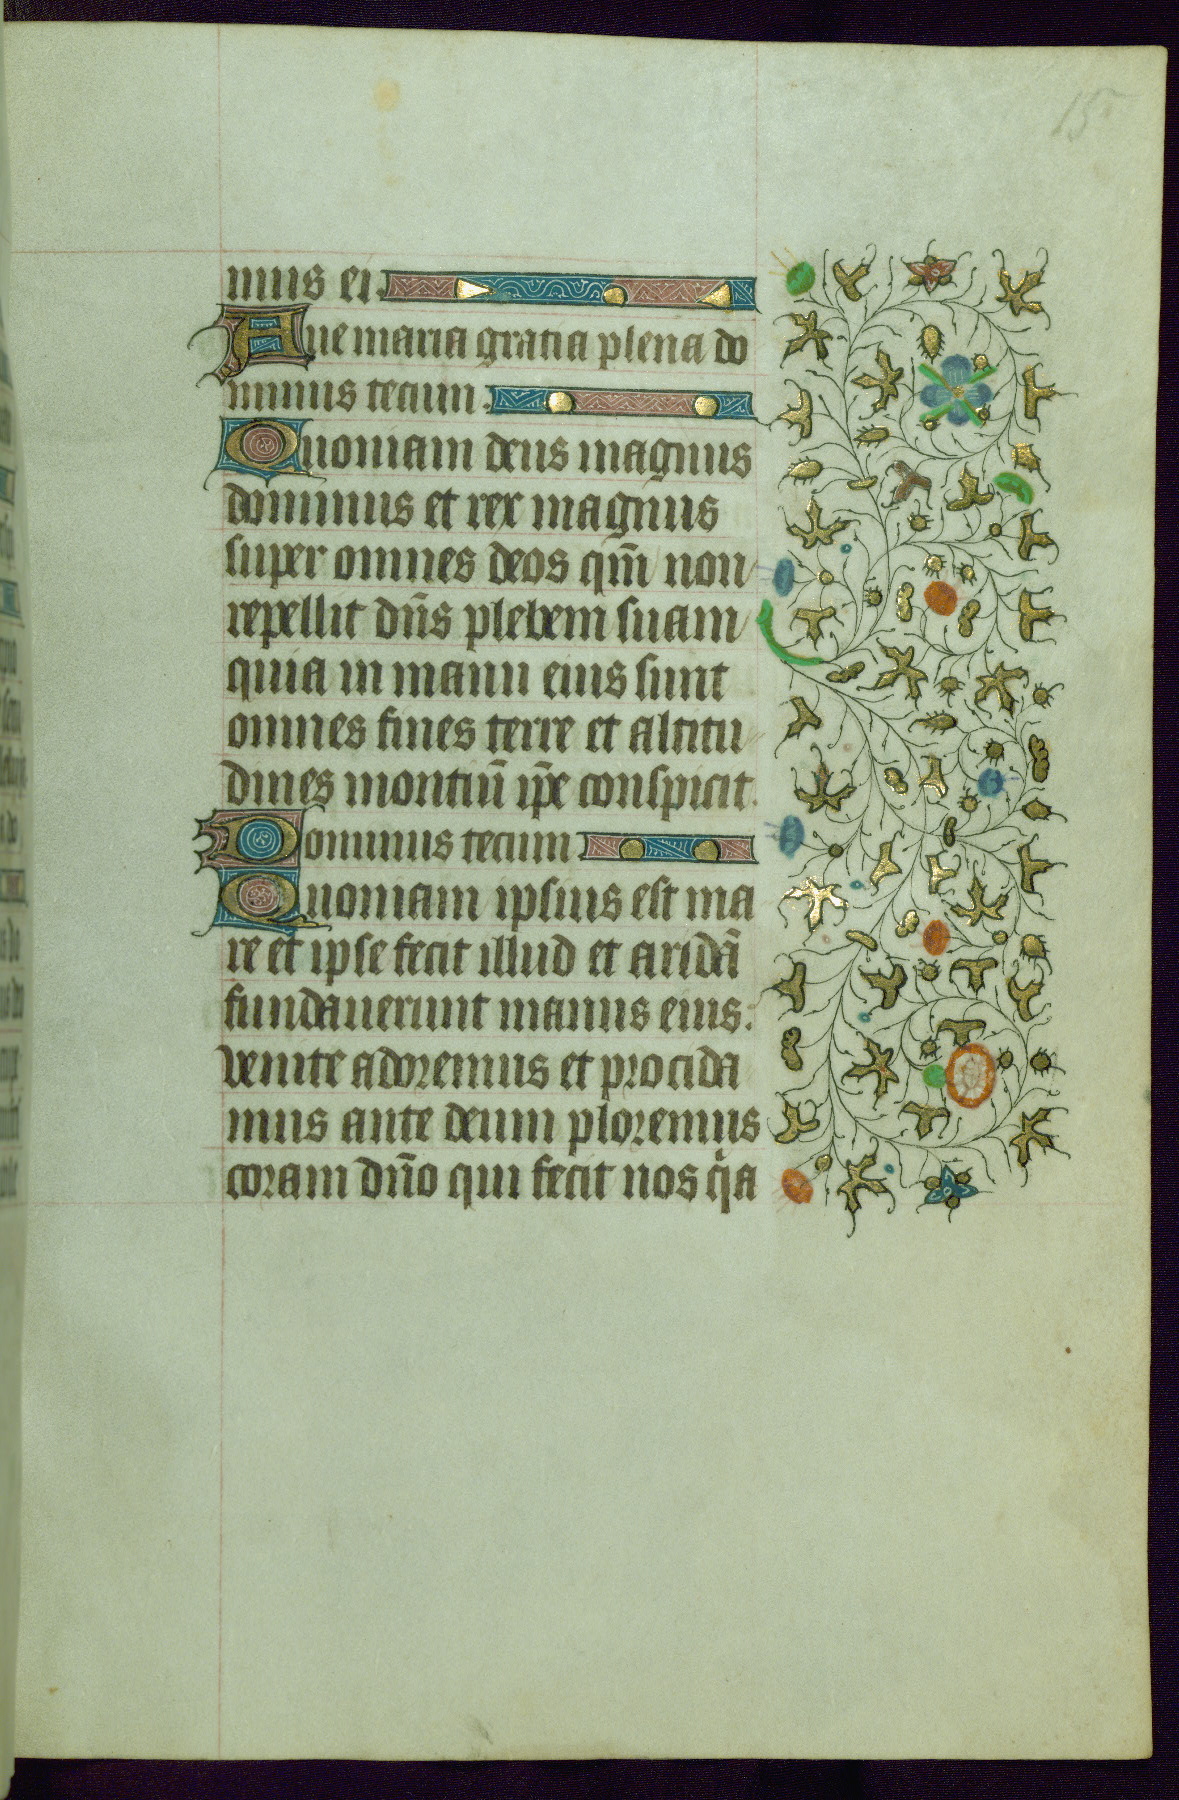 15
mus ei.
Aue maria gratia plena do
minus tecum.
Quoniam deus magnus
dominus et rex magnus
super omnes deos qm̄ non
repellit dn̄s plebem suam
quia in manu eius sunt
omnes fines terre et altitu
dines montiū ip̄e conspicit.
Dominus tecum
Quoniam ipsius est ma
re et ipse fecit illud et aridā
fundauerunt manus eius.
venite adoremus et procida
mus ante deum ploremus
coram dn̄o qui fecit nos qͥa